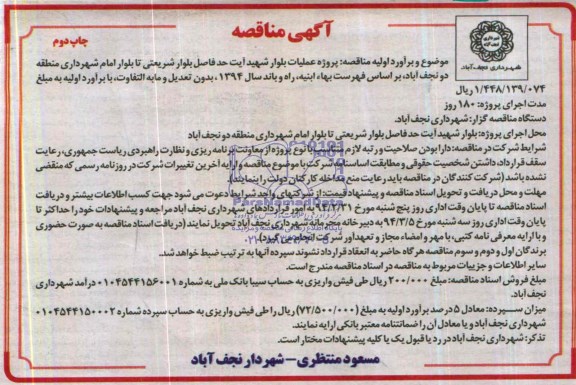 آگهی مناقصه
چاپ دوم
شهرداری نجف آباد
موضوع و برآورد اولیه مناقصه: پروژه عملیات بلوار شهید آیت حد فاصل بلوار شریعتی تا بلوار امام شهرداری منطقه
دو نجف آباد، بر اساس فهرست بهاء ابنیه، راه و باند سال ۱۳۹۴ ، بدون تعدیل و مابه التفاوت، با برآورد اولیه به مبلغ
۱/۴۴۸/۱۳۹/۰۷۴ ریال
مدت اجرای پروژه: ۱۸۰ روز
دستگاه مناقصه گزار: شهرداری نجف آباد.
محل اجرای پروژه: بلوار شهید آیت حد فاصل بلوار شریعتی تا بلوار امام شهرداری منطقه دو نجف آباد
شرایط شرکت در مناقصه: دارا بودن صلاحیت و رتبه لازم متناسب با نوع پروژه از معاونت برنامه ریزی و نظارت راهبردی ریاست جمهوری، رعایت
سقف قرارداد، داشتن شخصیت حقوقی و مطابقت اساسنامه شرکت با موضوع مناقصه و ارایه آخرین تغییرات شرکت در روزنامه رسمی که منقضی
نشده باشد (شرکت کنندگان در مناقصه باید رعایت منع مداخله کارکنان دولت را بنمایند).
مهلت و محل دریافت و تحویل اسناد مناقصه و پیشنهاد قیمت: از شرکتهای واجد شرایط دعوت می شود جهت کسب اطلاعات بیشتر و دریافت
اسناد مناقصه تا پایان وقت اداری روز پنج شنبه مورخ ۹۴/۲/۳۱ به امور قراردادهای شهرداری نجف آباد مراجعه و پیشنهادات خود را حداکثر تا
پایان وقت اداری روز سه شنبه مورخ ۹۴/۳/۵ به دبیرخانه محرمانه شهرداری نجف آباد تحویل نمایند (دریافت اسناد مناقصه به صورت حضوری
و با ارایه معرفی نامه کتبی، با مهر و امضاء مجاز و تعهدآور شرکت انجام می گیرد).
برندگان اول و دوم و سوم مناقصه هرگاه حاضر به انعقاد قرارداد نشوند سپرده آنها به ترتیب ضبط خواهد شد.
سایر اطلاعات و جزییات مربوط به مناقصه در اسناد مناقصه مندرج است.
مبلغ فروش اسناد مناقصه: مبلغ ۲۰۰/۰۰۰ ریال طی فیش واریزی به حساب سیبا بانک ملی به شماره ۰۱۰۴۵۴۴۱۵۶۰۰۱ درآمد شهرداری
نجف آباد.
میزان سپرده: معادل ۵ درصد برآورد اولیه به مبلغ (۷۲/۵۰۰/۰۰۰) ریال را طی فیش واریزی به حساب سپرده شماره ۰۱۰۴۵۴۴۱۵۰۰۰۲
شهرداری نجف آباد و یا معادل آن را ضمانتنامه معتبر بانکی ارایه نمایند.
تذکر: شهرداری نجف آباد در رد یا قبول یک یا کلیه پیشنهادات مختار است.
مسعود منتظری – شهردار نجف آباد
ParsNamadData